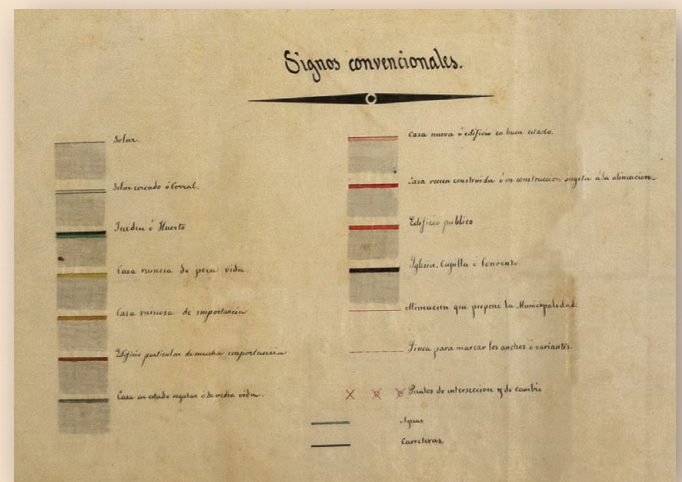 Signos convencionales.
Solar.
Solar cercado ó Corral.
Jardin ó Huerto
Casa ruinosa de poca vida.
Casa ruinosa de importancia
Edificio particular de mucha importancia
Casa en estado regular ó de media vida.
Casa nueva ó edificio en buen estado.
Casa recien construida ó en construccion sugeta á la alineacion.
Edificio publico
Iglesia, Capilla ó Convento
Alineacion que propone la Municipalidad.
Linea para marcar los anchos ó variantes.
Puntos de interseccion y de cambio
Aguas
Carreteras.